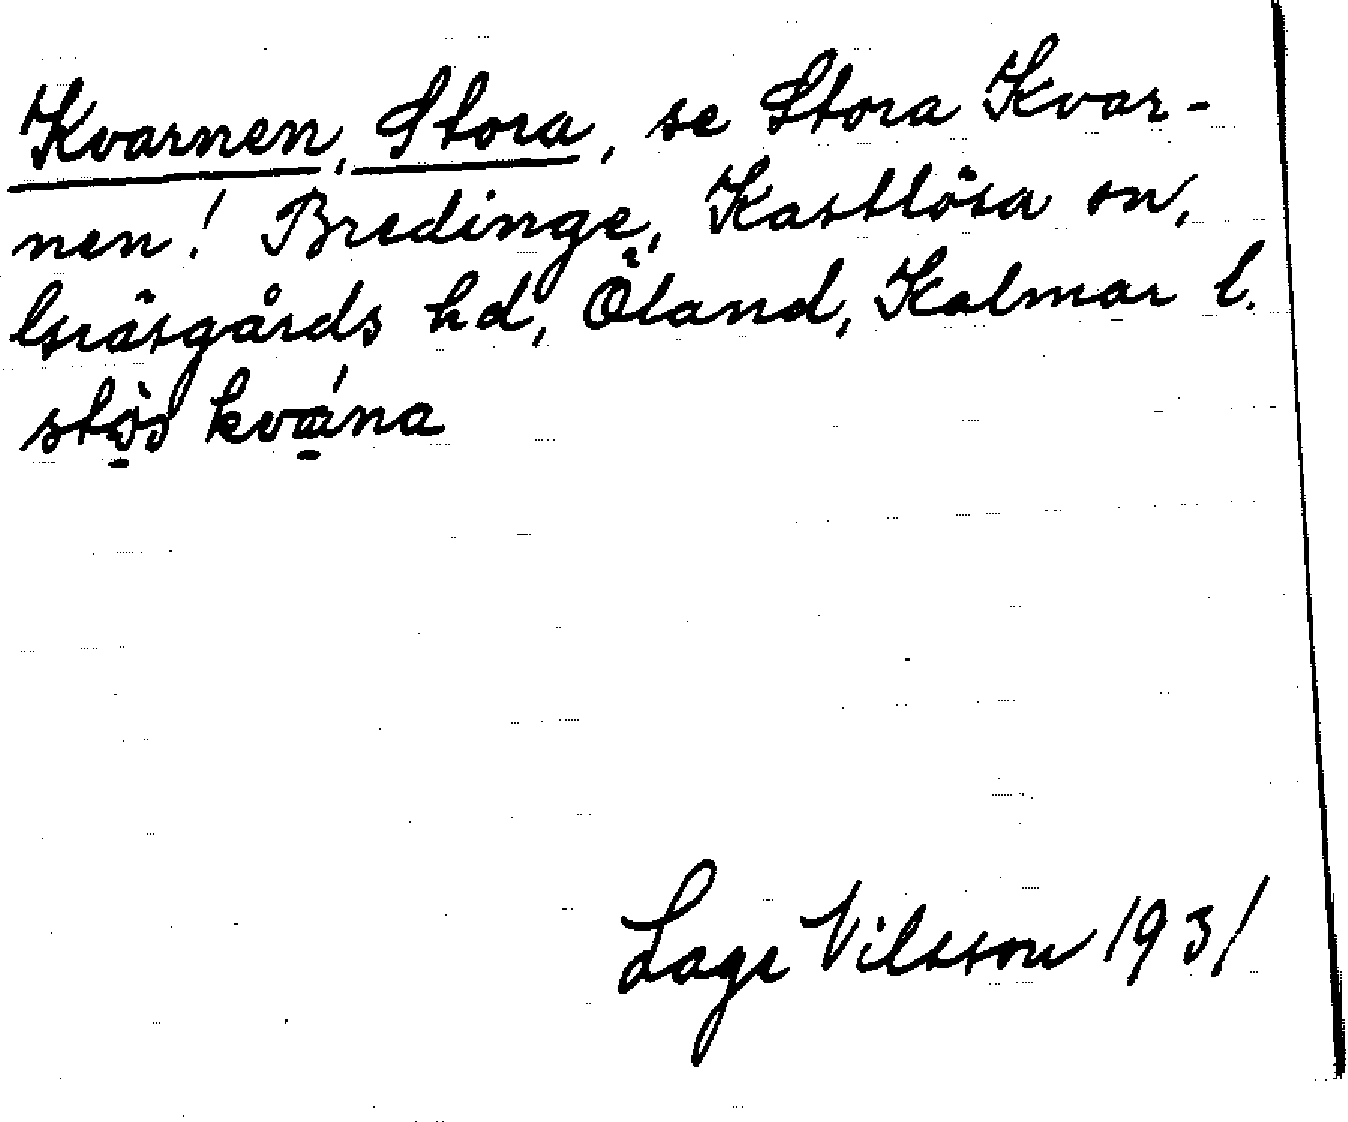 Kvarnen, Stora, se Stora Kvar-
nen! Bredinge, Kastlösa sn,
Gräsgårds hd, Öland, Kalmar l.
Lage Nilsson 1931